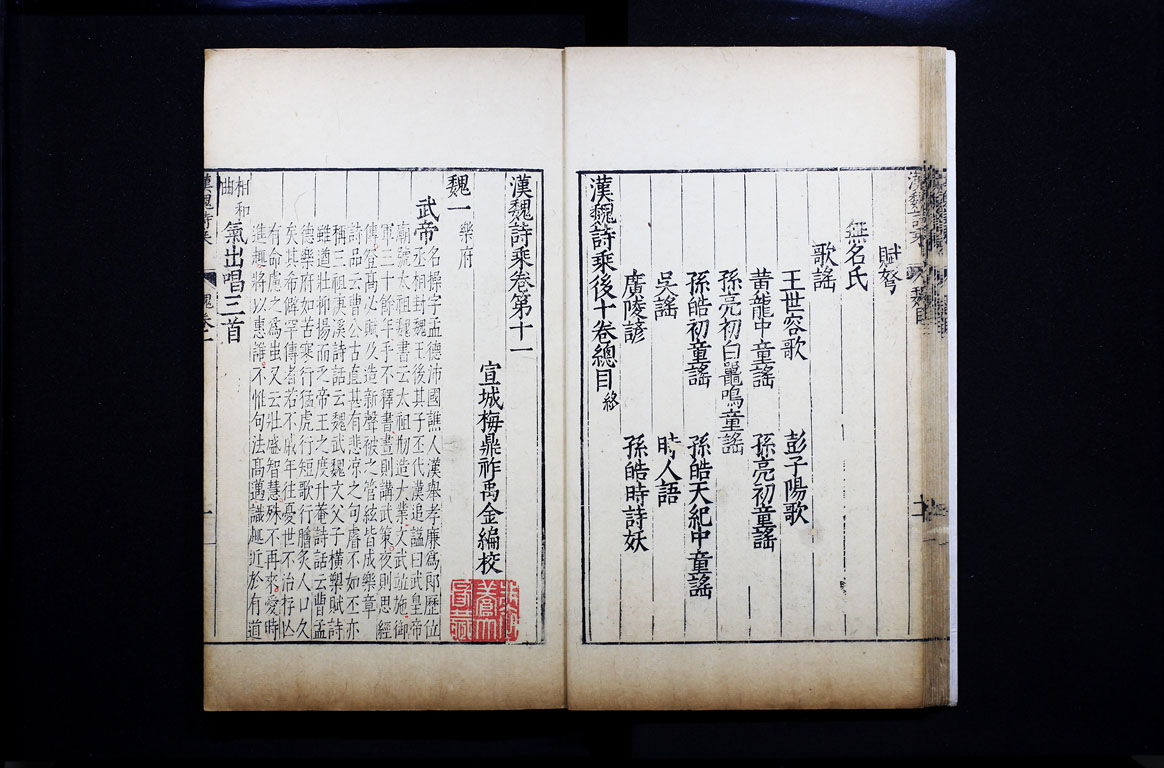 漢魏詩乘 魏目
賦弩
無名氏
歌謠
王世容歌 彭子陽歌
黃龍中童謠 孫亮初童謠
孫亮初白鼉鳴童謠
孫皓初童謠 孫皓天紀中童謠
吳謠 時人語
廣陵諺 孫皓時詩妖
漢魏詩乘後十卷總目 終
漢魏詩乘卷第十一
宣城梅鼎祚禹金編校
魏一 樂府
武帝 名操字孟德沛國譙人漢舉孝廉爲郎歷位
丞相封魏王後其子丕代漢追謚曰武皇帝
廟號太祖魏書云太祖刱造大業文武竝施御
軍三十餘年手不釋書晝則講武策夜則思經
傳登髙必賦及造新聲被之管絃皆成樂章
詩品云曹公古直甚有悲凉之句睿不如丕亦
稱三祖庚溪詩話云魏武魏文父子橫槊賦詩
雖遒壯抑揚而乏帝王之度升菴詩話云曹孟
德樂府如苦寒行猛虎行短歌行膾炙人口久
矣其希僻罕傳者若不戚年往憂世不治存亾
有命慮之爲蚩又云壯盛智慧殊不再來愛時
進趣將以惠誰不惟句法髙邁識趣近於有道
相和曲 氣出唱三首
漢魏詩乘 魏卷一 一